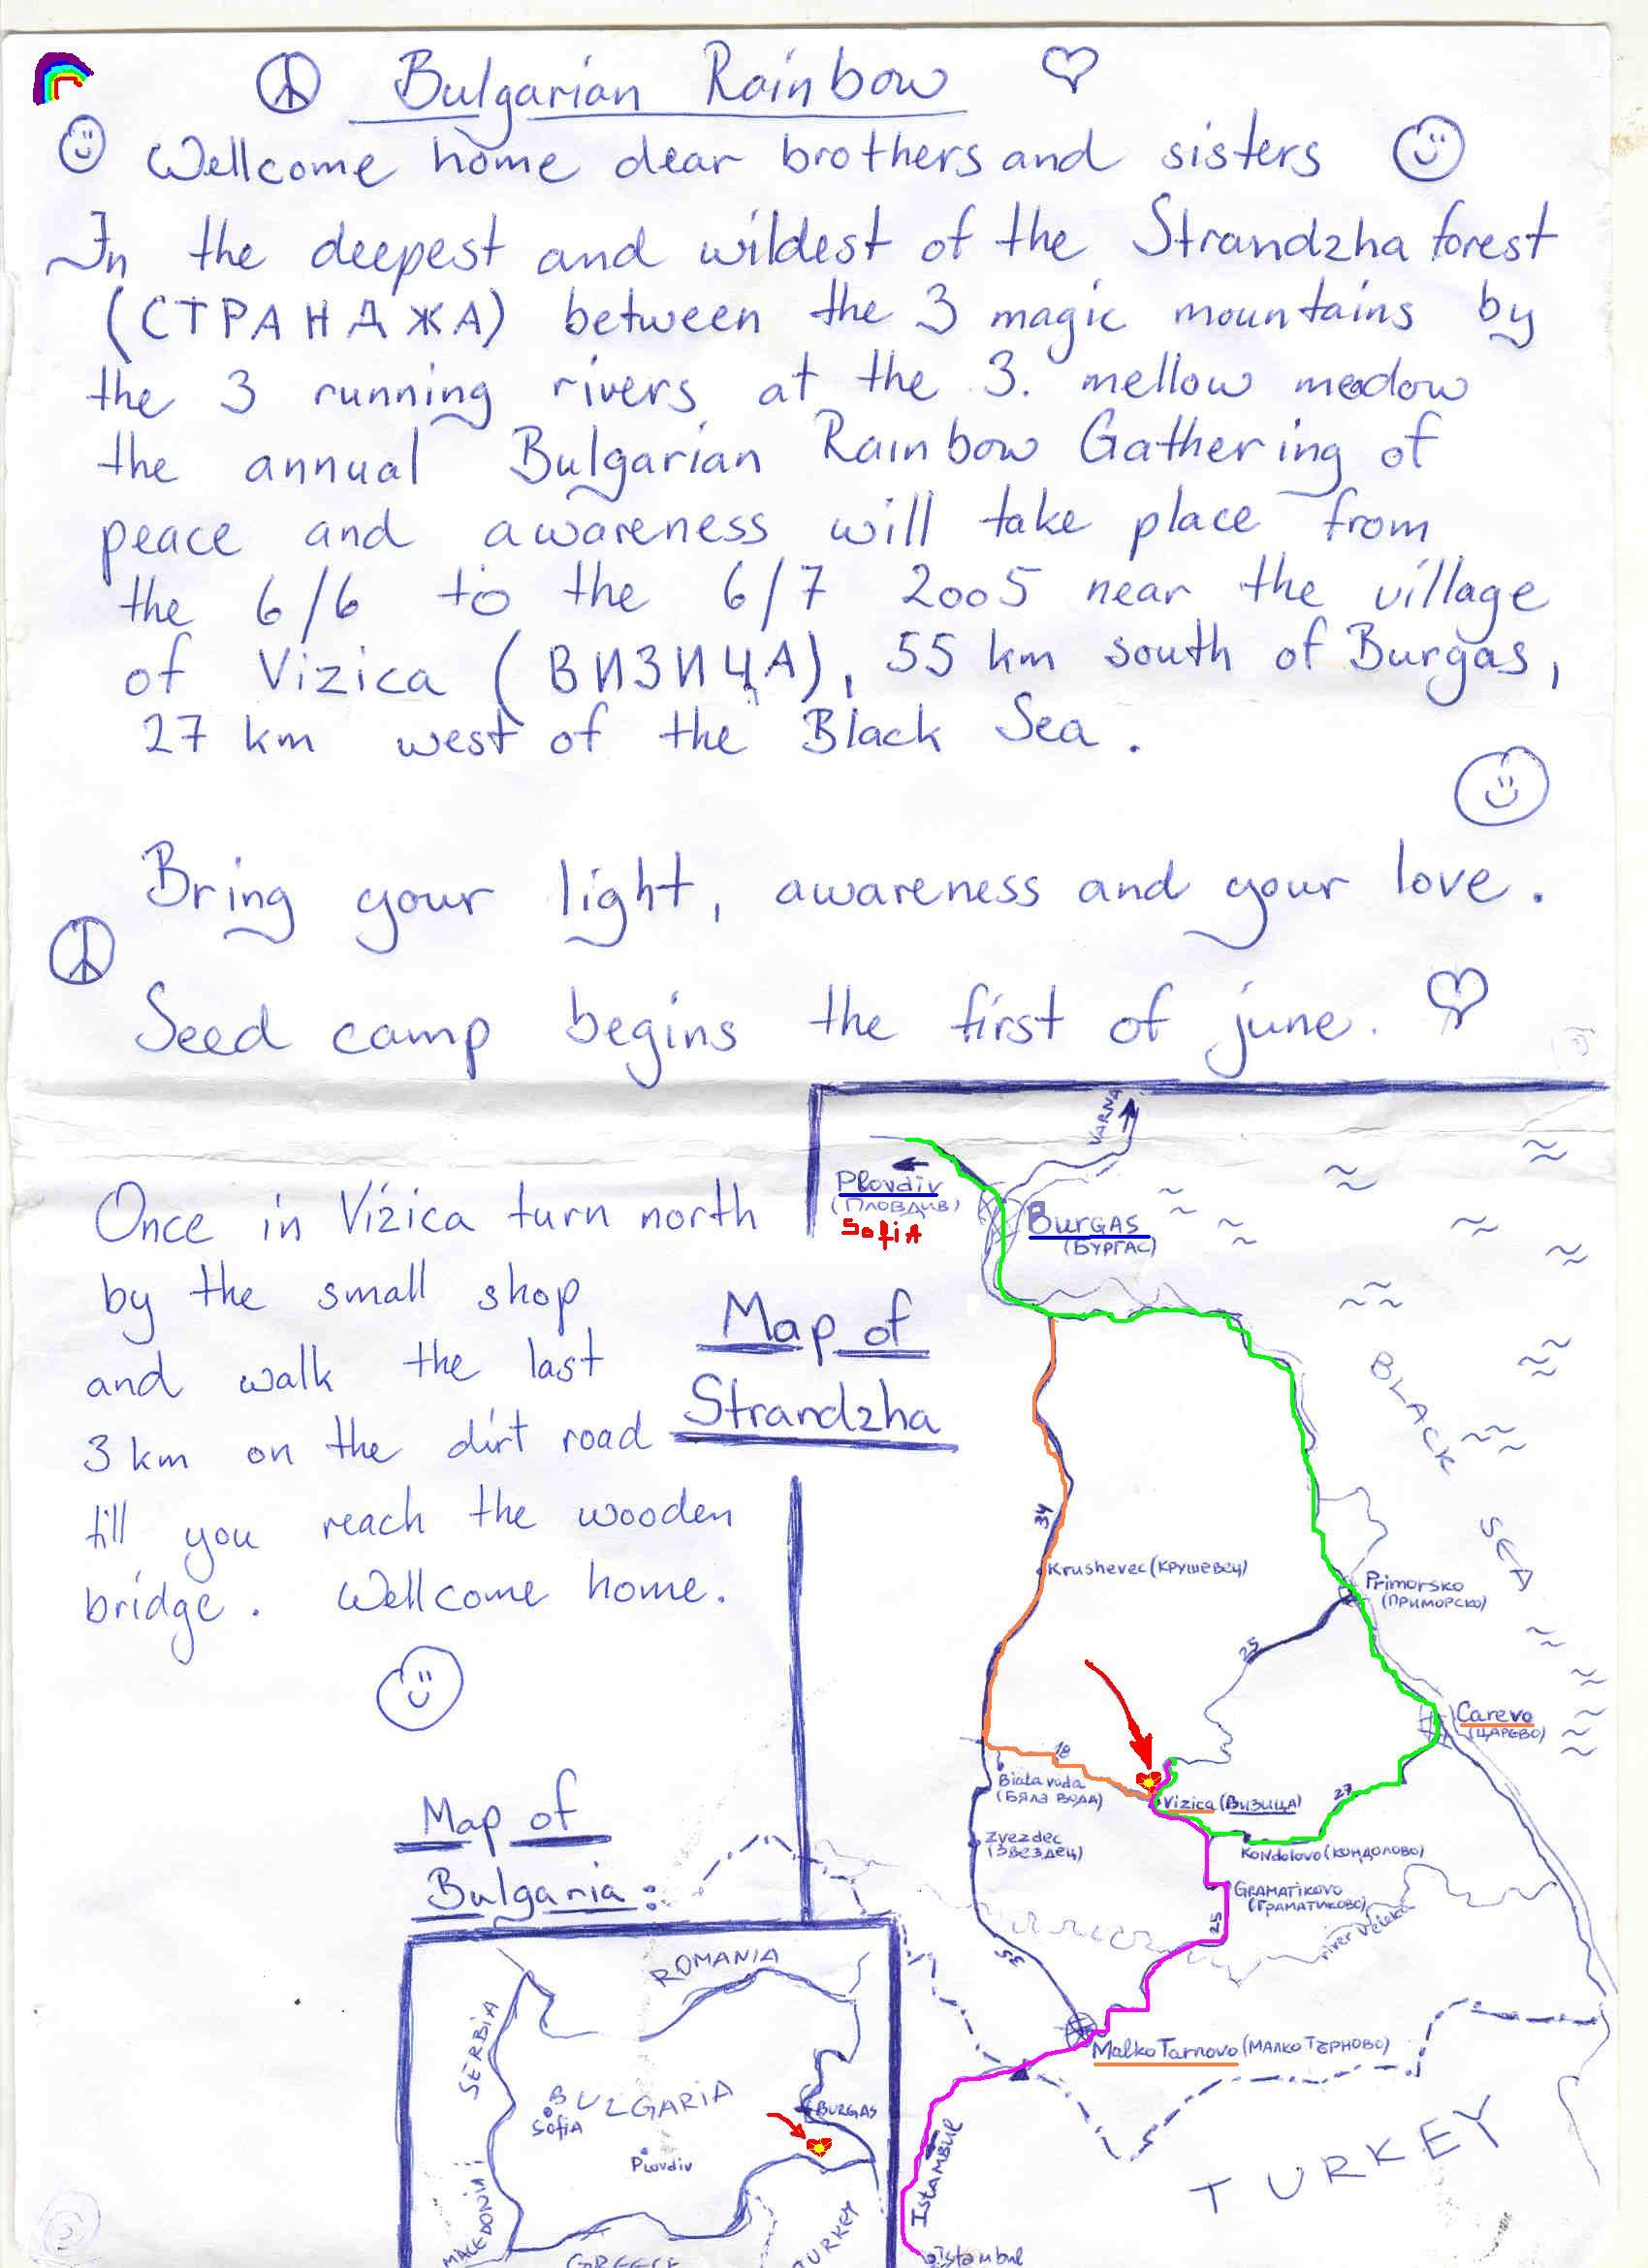 Bulgarian Rainbow
Wellcome home dear brothers and sisters
In the deepest and wildest of the Strandzha forest
(СТРАНДЖА) between the 3 magic mountains by
the 3 running rivers at the 3. mellow meadow
the annual Bulgarian Rainbow Gathering of
peace and awareness will take place from
the 6/6 to the 6/7 2005 near the village
of Vizica (ВИЗИЦА), 55 km south of Burgas,
27 km west of the Black Sea.
Bring your light, awareness and your love.
Seed camp begins the first of june.
Once in Vizica turn north
by the small shop
and walk the last
3 km on the dirt road
till you reach the wooden
bridge. Wellcome home.
Map of
Strandzha
VARNA
Plovdiv
(ПЛОВДИВ)
SofiA
BurGAS
(БУРГАС)
BLACK SEA
34
Krushevec (КРУШЕВЕЦ)
Primorsko
(ПРИМОРСКО)
25
Carevo
(ЦАРЕВО)
18
Biala voda
(БЯЛА ВОДА)
Vizica (ВИЗИЦА)
27
Zvezdec
(ЗВЕЗДЕЦ)
Kondolovo (КОНДОЛОВО)
GRAMATIKOVO
(ГРАМАТИКОВО)
25
river Veleka
35
Malko Tarnovo (МАЛКО ТЪРНОВО)
TURKEY
ISTAMBUL
istambul
Map of
Bulgaria:
ROMANIA
SERBIA
BULGARIA
Sofia
BURGAS
Plovdiv
MACEDONIA
GREECE
TURKEY